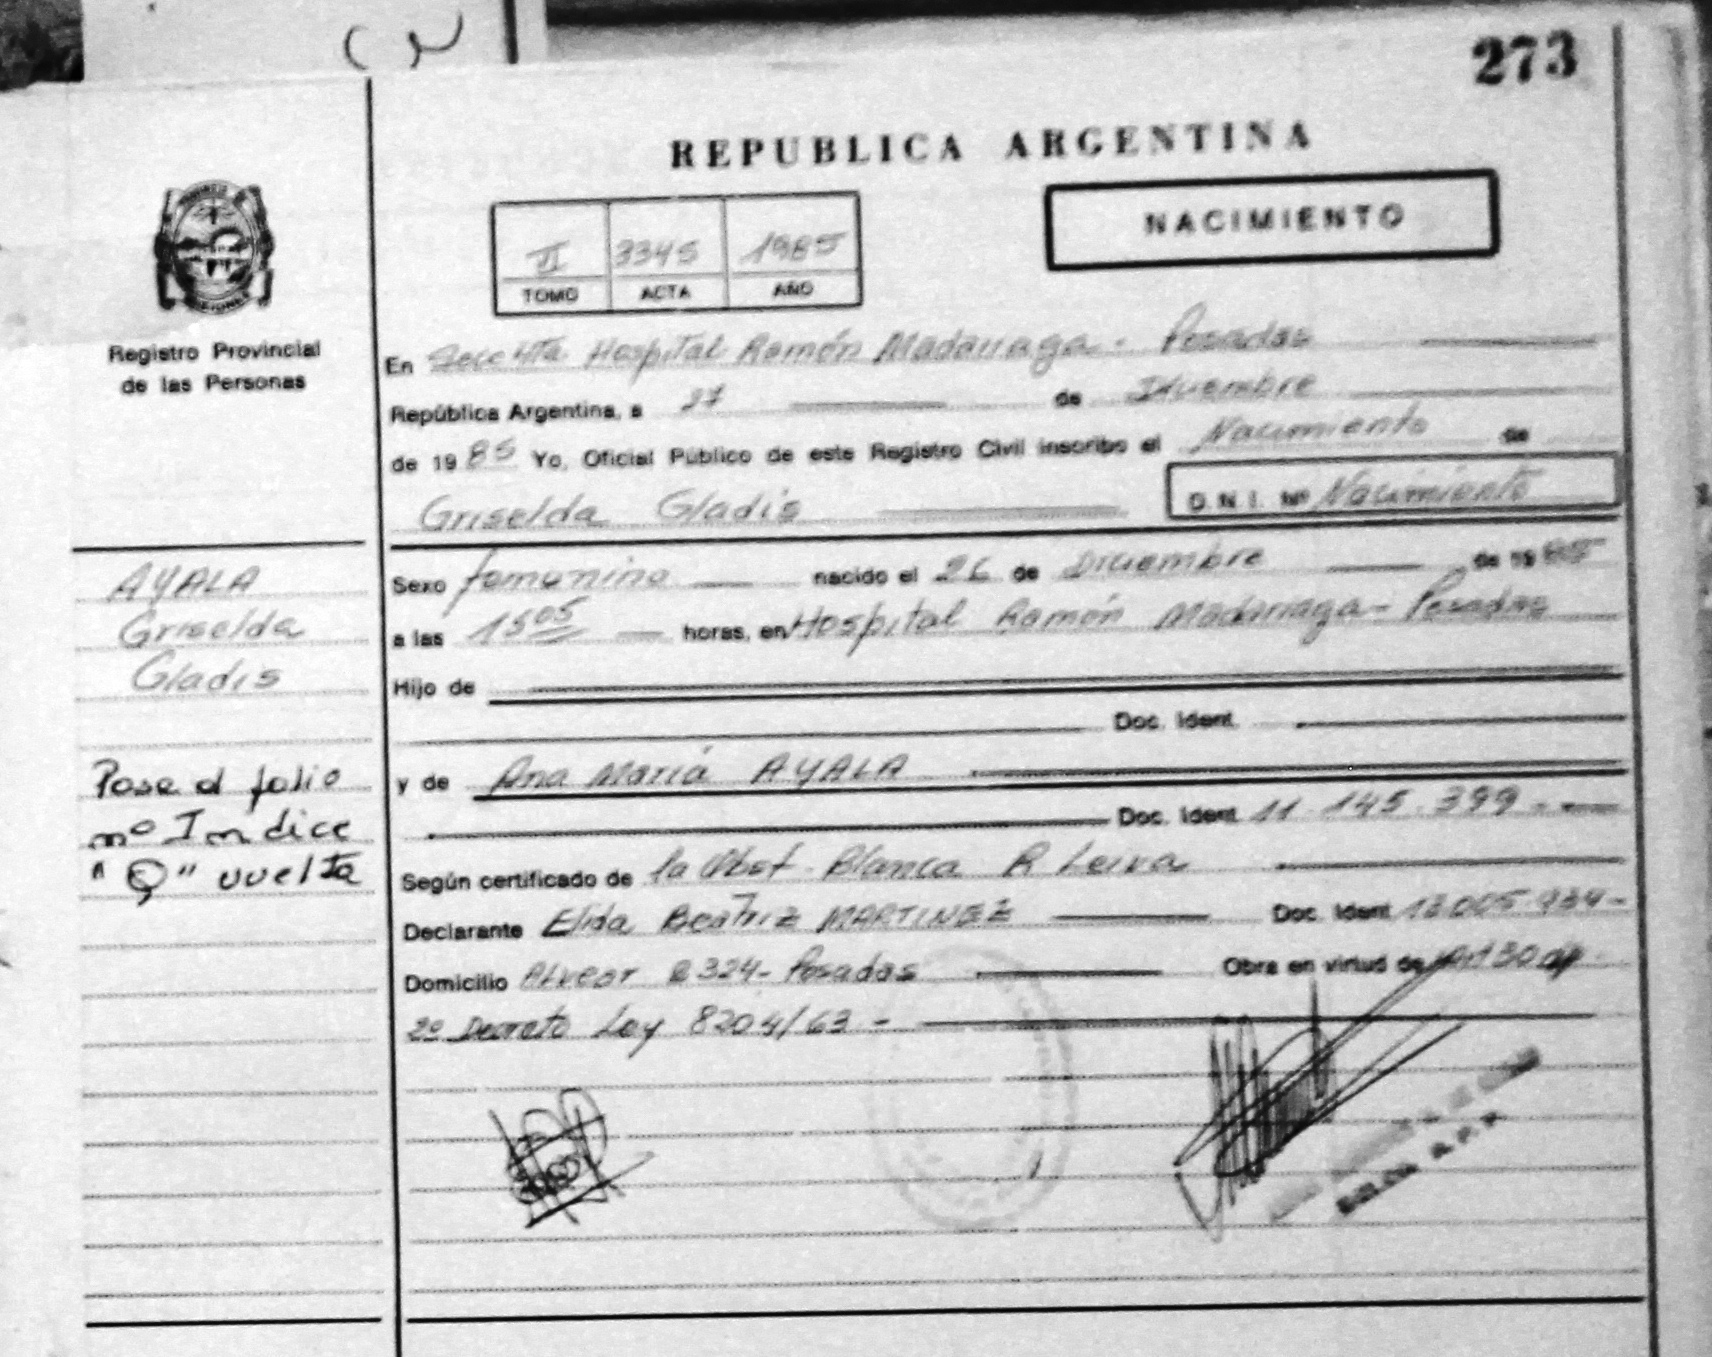 273
REPUBLICA ARGENTINA
NACIMIENTO
VI 3345 1985
TOMO ACTA AÑO
Registro Provincial
de las Personas
En Secc 4ta Hospital Ramón Madariaga - Posadas
República Argentina, a 27 de Diciembre
de 1985 Yo, Oficial Público de este Registro Civil inscribo el Nacimiento de
Griselda Gladis D.N.I. Nº Nacimiento
AYALA
Griselda
Gladis
Sexo femenino nacido el 26 de Diciembre de 1985
a las 15 05 horas, en Hospital Ramón Madariaga - Posadas
Hijo de
Doc. Ident.
y de Ana María AYALA
Doc. Ident. 11.145.399 -
Pase al folio
nº Indice
"Q" vuelta
Según certificado de la Obst. Blanca R Leiva
Declarante Elida Beatriz MARTINEZ Doc. Ident. 13.005.934 -
Domicilio Alvear 2324 - Posadas Obra en virtud de Art 30 ap
2º Decreto Ley 8204/63 -